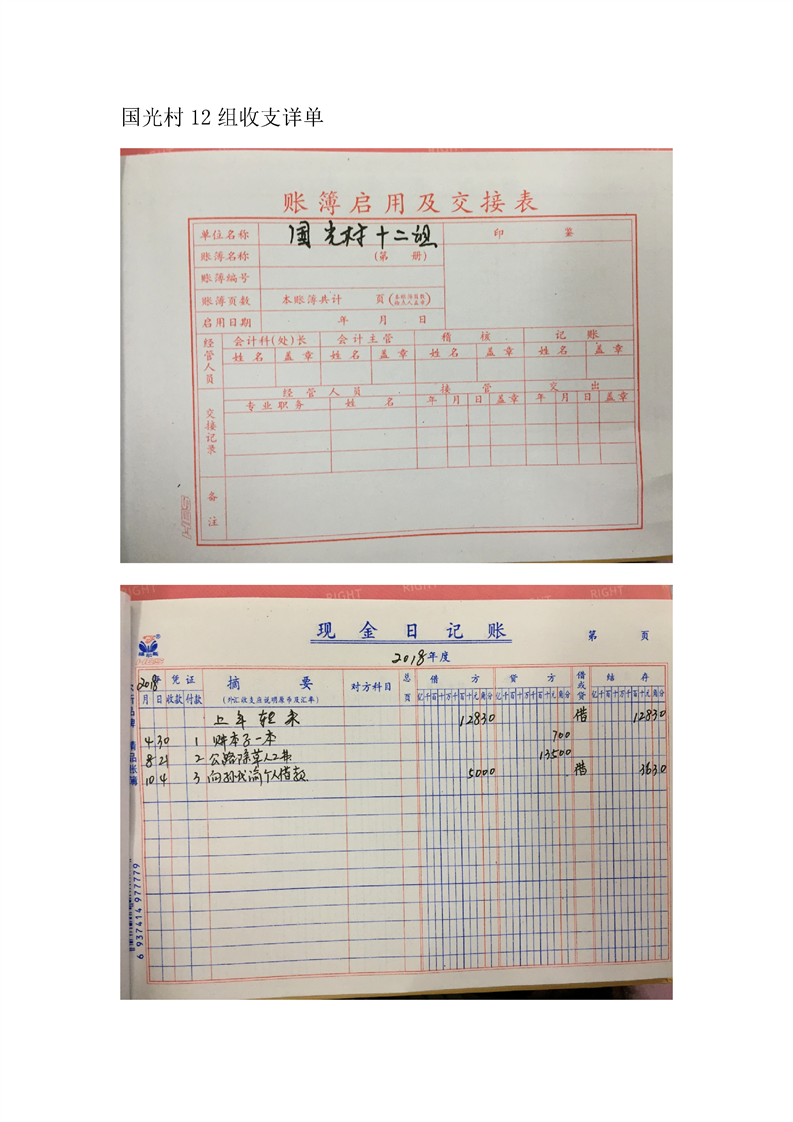 国光村 12 组收支详单
账簿启用及交接表
单位名称 国光村十二组 印 鉴
账簿名称 (第 册)
账簿编号
账簿页数 本账簿共计 页
启用日期 年 月 日
经管人员 会计科(处)长 会计主管 稽 核 记 账
姓 名 盖 章 姓 名 盖 章 姓 名 盖 章 姓 名 盖 章
交接记录 经 管 人 员 接 管 交 出
专业职务 姓 名 年 月 日 盖章 年 月 日 盖章
备 注
RIGHT RIGHT RIGHT RIGHT
现 金 日 记 账 第 页
2018年度
2018年 凭证 摘 要 对方科目 总页 借 方 贷 方 借或贷 结 存
月 日 收款 付款 (外汇收支应说明原币及汇率) 亿千百十万千百十元角分 亿千百十万千百十元角分 亿千百十万千百十元角分
上年转来 12830 借 12830
4 30 1 账本子一本 700
8 21 2 公路除草人工费 13500
10 4 3 向孙代富个人借款 5000 借 3630
6 937414 977779